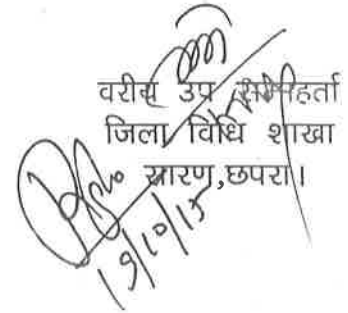 वरीय उप समाहर्ता
जिला विधि शाखा
सारण,छपरा।
19/10/15